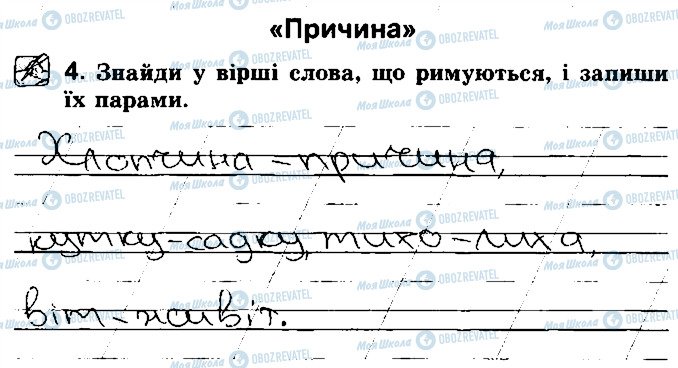 «Причина»
4. Знайди у вірші слова, що римуються, і запиши
їх парами.
Хлопчина – причина,
кутку – садку, тихо – лиха,
віт – живіт.